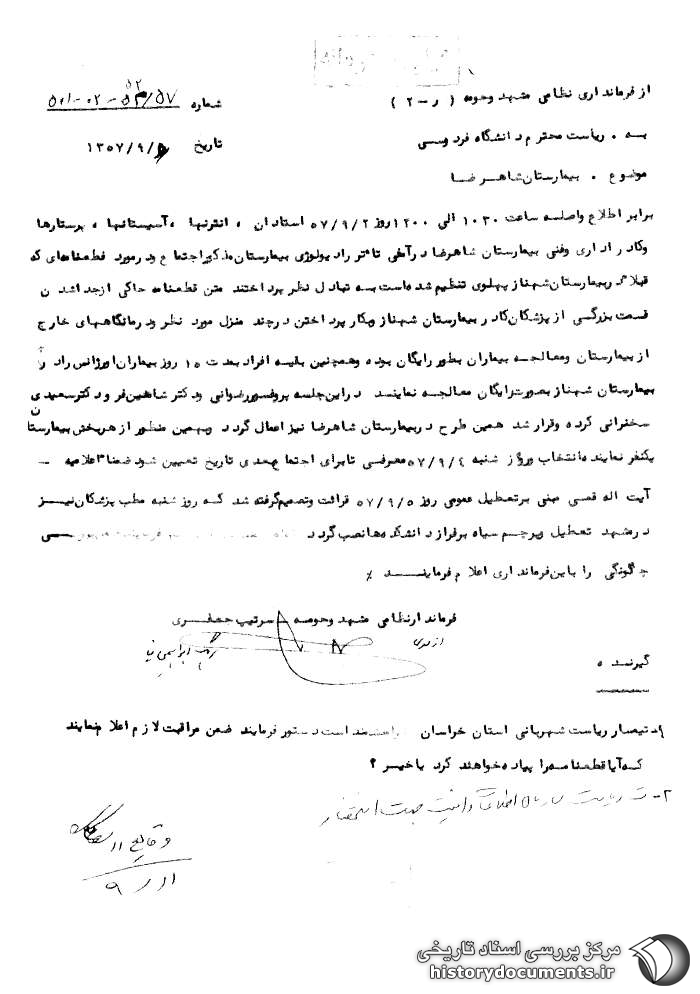 از فرمانداری نظامی مشهد وحومه ( ر-۲ )
شماره
به . ریاست محترم دانشگاه فردوسی
تاریخ ۱۳۵۷/۹/
موضوع . بیمارستان شاهرضا
برابر اطلاع واصله ساعت ۱۰۳۰ الی ۱۲۰۰ روز ۵۷/۹/۲ استادان ، انترنها ، آسیستانها ، پرستارها
وکادر اداری وفنی بیمارستان شاهرضا در آمفی تاتر رادیولوژی بیمارستان مذکور اجتماع ودرمورد قطعنامه‌ای که
قبلا در بیمارستان شهناز پهلوی تنظیم شده است به تبادل نظر پرداختند متن قطعنامه حاکی از جدا شدن
قسمت بزرگی از پزشکان کادر بیمارستان شهناز وبکار پرداختن در چند منزل مورد نظر ودرمانگاههای خارج
از بیمارستان ومعالجه بیماران بطور رایگان بوده وهمچنین بقیه افراد بمدت ۱۵ روز بیماران اورژانس را در
بیمارستان شهناز بصورت رایگان معالجه نمایند در این جلسه پروفسور رضوانی ودکتر شاهین فر و دکتر سعیدی
سخنرانی کرده وقرار شد همین طرح در بیمارستان شاهرضا نیز اعمال گردد وبهمین منظور از هر بخش بیمارستان
یکنفر نماینده انتخاب وروز شنبه ۵۷/۹/۴ معرفی تا برای اجتماع بعدی تاریخ تعیین شود ضمنا اعلامیه -
آیت اله قمی مبنی بر تعطیل عمومی روز ۵۷/۹/۵ قرائت وتصمیم گرفته شد که روز شنبه مطب پزشکان نیز
در مشهد تعطیل وپرچم سیاه بر فراز دانشکده ها نصب گردد
چگونگی را باین فرمانداری اعلام فرمایند ٪
فرماندار نظامی مشهد وحومه سرتیپ جعفری
از طرف
گیرنده ه
۱- تیمسار ریاست شهربانی استان خراسان خواهشمند است دستور فرمایند ضمن مراقبت لازم اعلام نمایند
که آیا قطعنامه را پیاده خواهند کرد یا خیر ؟
۲- جهت استحضار
وقایع
مرکز بررسی اسناد تاریخی
historydocuments.ir